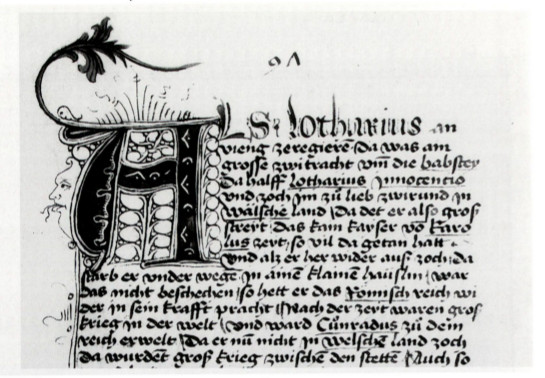 91
ALS Lotharius an
vieng zeregiere Da was am
grosse zwitracht vm̄ die babstey
Da halff Lotharius Innocentio
vnd zoch jm zu lieb zwirund jn
wälsche land Da det er also groß
streit das kam kayser vō Karo
lus zeit so vil da getan hatt
vnd alz er her wider auß zoch da
starb er vnder wege jn ainē klainē häuslin war
das nicht beschechen so hett er das Römisch reich wi
der jn sein krafft pracht Nach der zeit waren groß
krieg jn der welt vnd ward Cūnradus zu dem
reich erwelt Da er nū nicht jn welschē land zoch
da wurdēt groß krieg zwischē den stettē Auch so